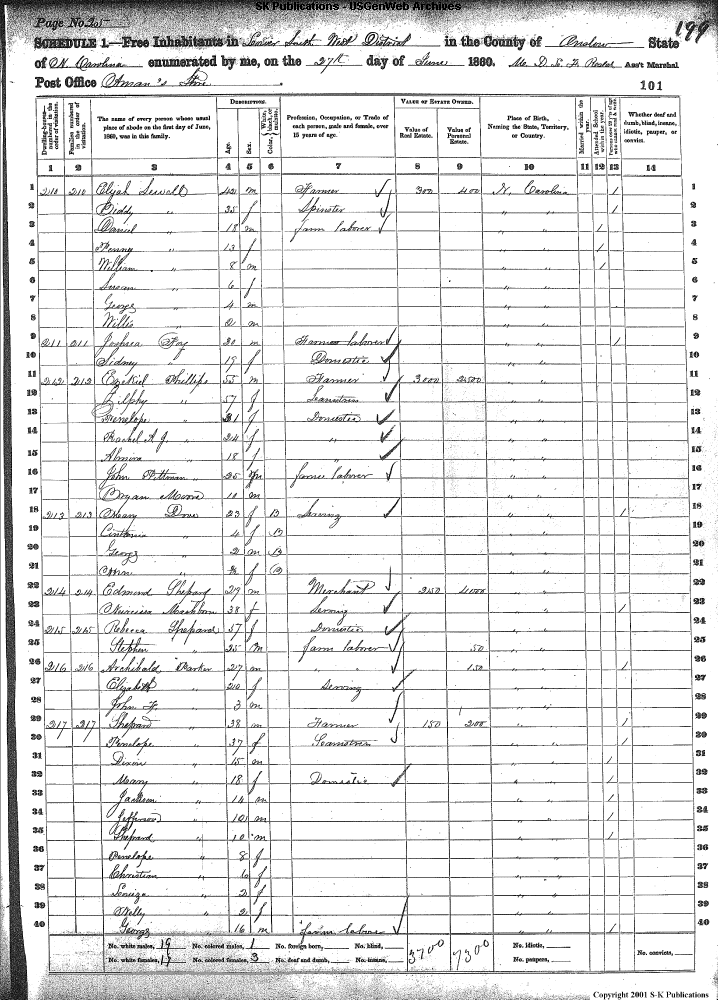 SK Publications - USGenWeb Archives
Page No. 205
199
SCHEDULE 1.—Free Inhabitants in South West District in the County of Onslow State
of N. Carolina enumerated by me, on the 27th day of June 1860. Ass't Marshal
Post Office Aman's Store
101
Dwelling-houses numbered in the order of visitation. Families numbered in the order of visitation. The name of every person whose usual place of abode on the first day of June, 1860, was in this family. DESCRIPTION. Age. Sex. Color, White, black, or mulatto. Profession, Occupation, or Trade of each person, male and female, over 15 years of age. VALUE OF ESTATE OWNED. Value of Real Estate. Value of Personal Estate. Place of Birth, Naming the State, Territory, or Country. Married within the year. Attended School within the year. Whether deaf and dumb, blind, insane, idiotic, pauper, or convict.
1 2 3 4 5 6 7 8 9 10 11 12 13 14
1 210 210 Elijah Sewell 42 m Farmer 300 400 N. Carolina / 1
2 Biddy " 35 f Spinster " " / 2
3 Daniel " 18 m farm laborer " " / 3
4 Penny " 13 f " " / 4
5 William " 8 m " " / 5
6 Susan " 6 f " " 6
7 George " 4 m " " 7
8 Willis " 2 m " " 8
9 211 211 Joshua 20 m Farm laborer " " / 9
10 Sidney " 19 f Domestic " " 10
11 212 212 Ezekiel Phillips 55 m Farmer 3000 2500 " " 11
12 Zilphy " 57 f Seamstress " " 12
13 Penelope " 31 f Domestic " " 13
14 Rachel A. J. " 24 f " " " 14
15 Almira " 18 f " " " 15
16 John Pittman 25 m farm laborer " " 16
17 Bryan Moore 10 m " " 17
18 213 213 Mary Dove 23 f B Serving " " / 18
19 " 4 f B " " 19
20 George " 2 m B " " 20
21 " f B " " 21
22 214 214 Edmund Shepard 29 m Merchant 250 4000 " " 22
23 Mashborn 38 f Serving " " / 23
24 215 215 Rebecca Shepard 57 f Domestic " " 24
25 Stephen " 25 m farm laborer 50 " " 25
26 216 216 Archibald Barker 27 m " " 150 " " / 26
27 Elizabeth " 20 f Serving " " 27
28 John F. " 3 m " " 28
29 217 217 Shepard " 38 m Farmer 150 200 " " / 29
30 Penelope " 37 f Seamstress " " / 30
31 Dixon " 15 m " " / 31
32 Mary " 18 f Domestic " " / 32
33 Jackson " 14 m " " / 33
34 Jefferson " 10 m " " / 34
35 Shepard " 10 m " " / 35
36 Penelope " 8 f " " 36
37 Christian " 6 f " " 37
38 " 2 f " " 38
39 " 2 f " " 39
40 George " 16 m farm laborer " " / 40
No. white males, 19 No. colored males, 1 No. foreign born, No. blind, 3700 7300 No. idiotic,
No. white females, 17 No. colored females, 3 No. deaf and dumb, No. insane, No. paupers, No. convicts,
Copyright 2001 S-K Publications